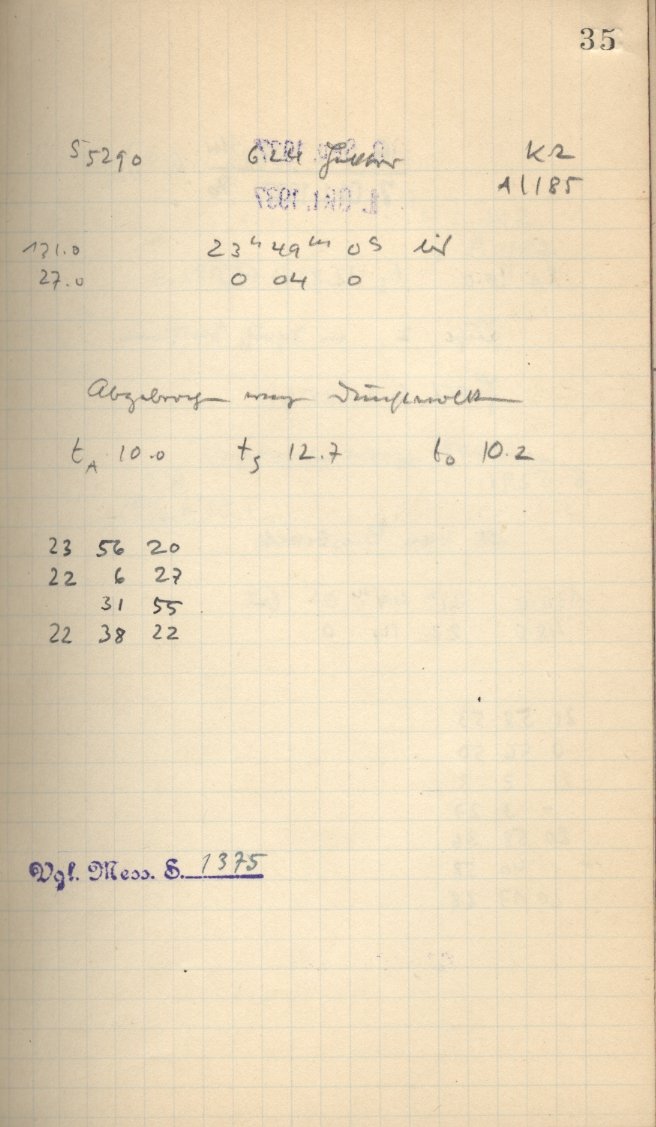 35
S 5290 624 Hektor K2
A1185
131.0 23ʰ 49ᵐ 0ˢ
27.0 0 04 0
Abgebrochen wegen Dunstwolken
t_A 10.0 t_S 12.7 t_O 10.2
23 56 20
22 6 27
31 55
22 38 22
Vgl. Mess. S. 1375